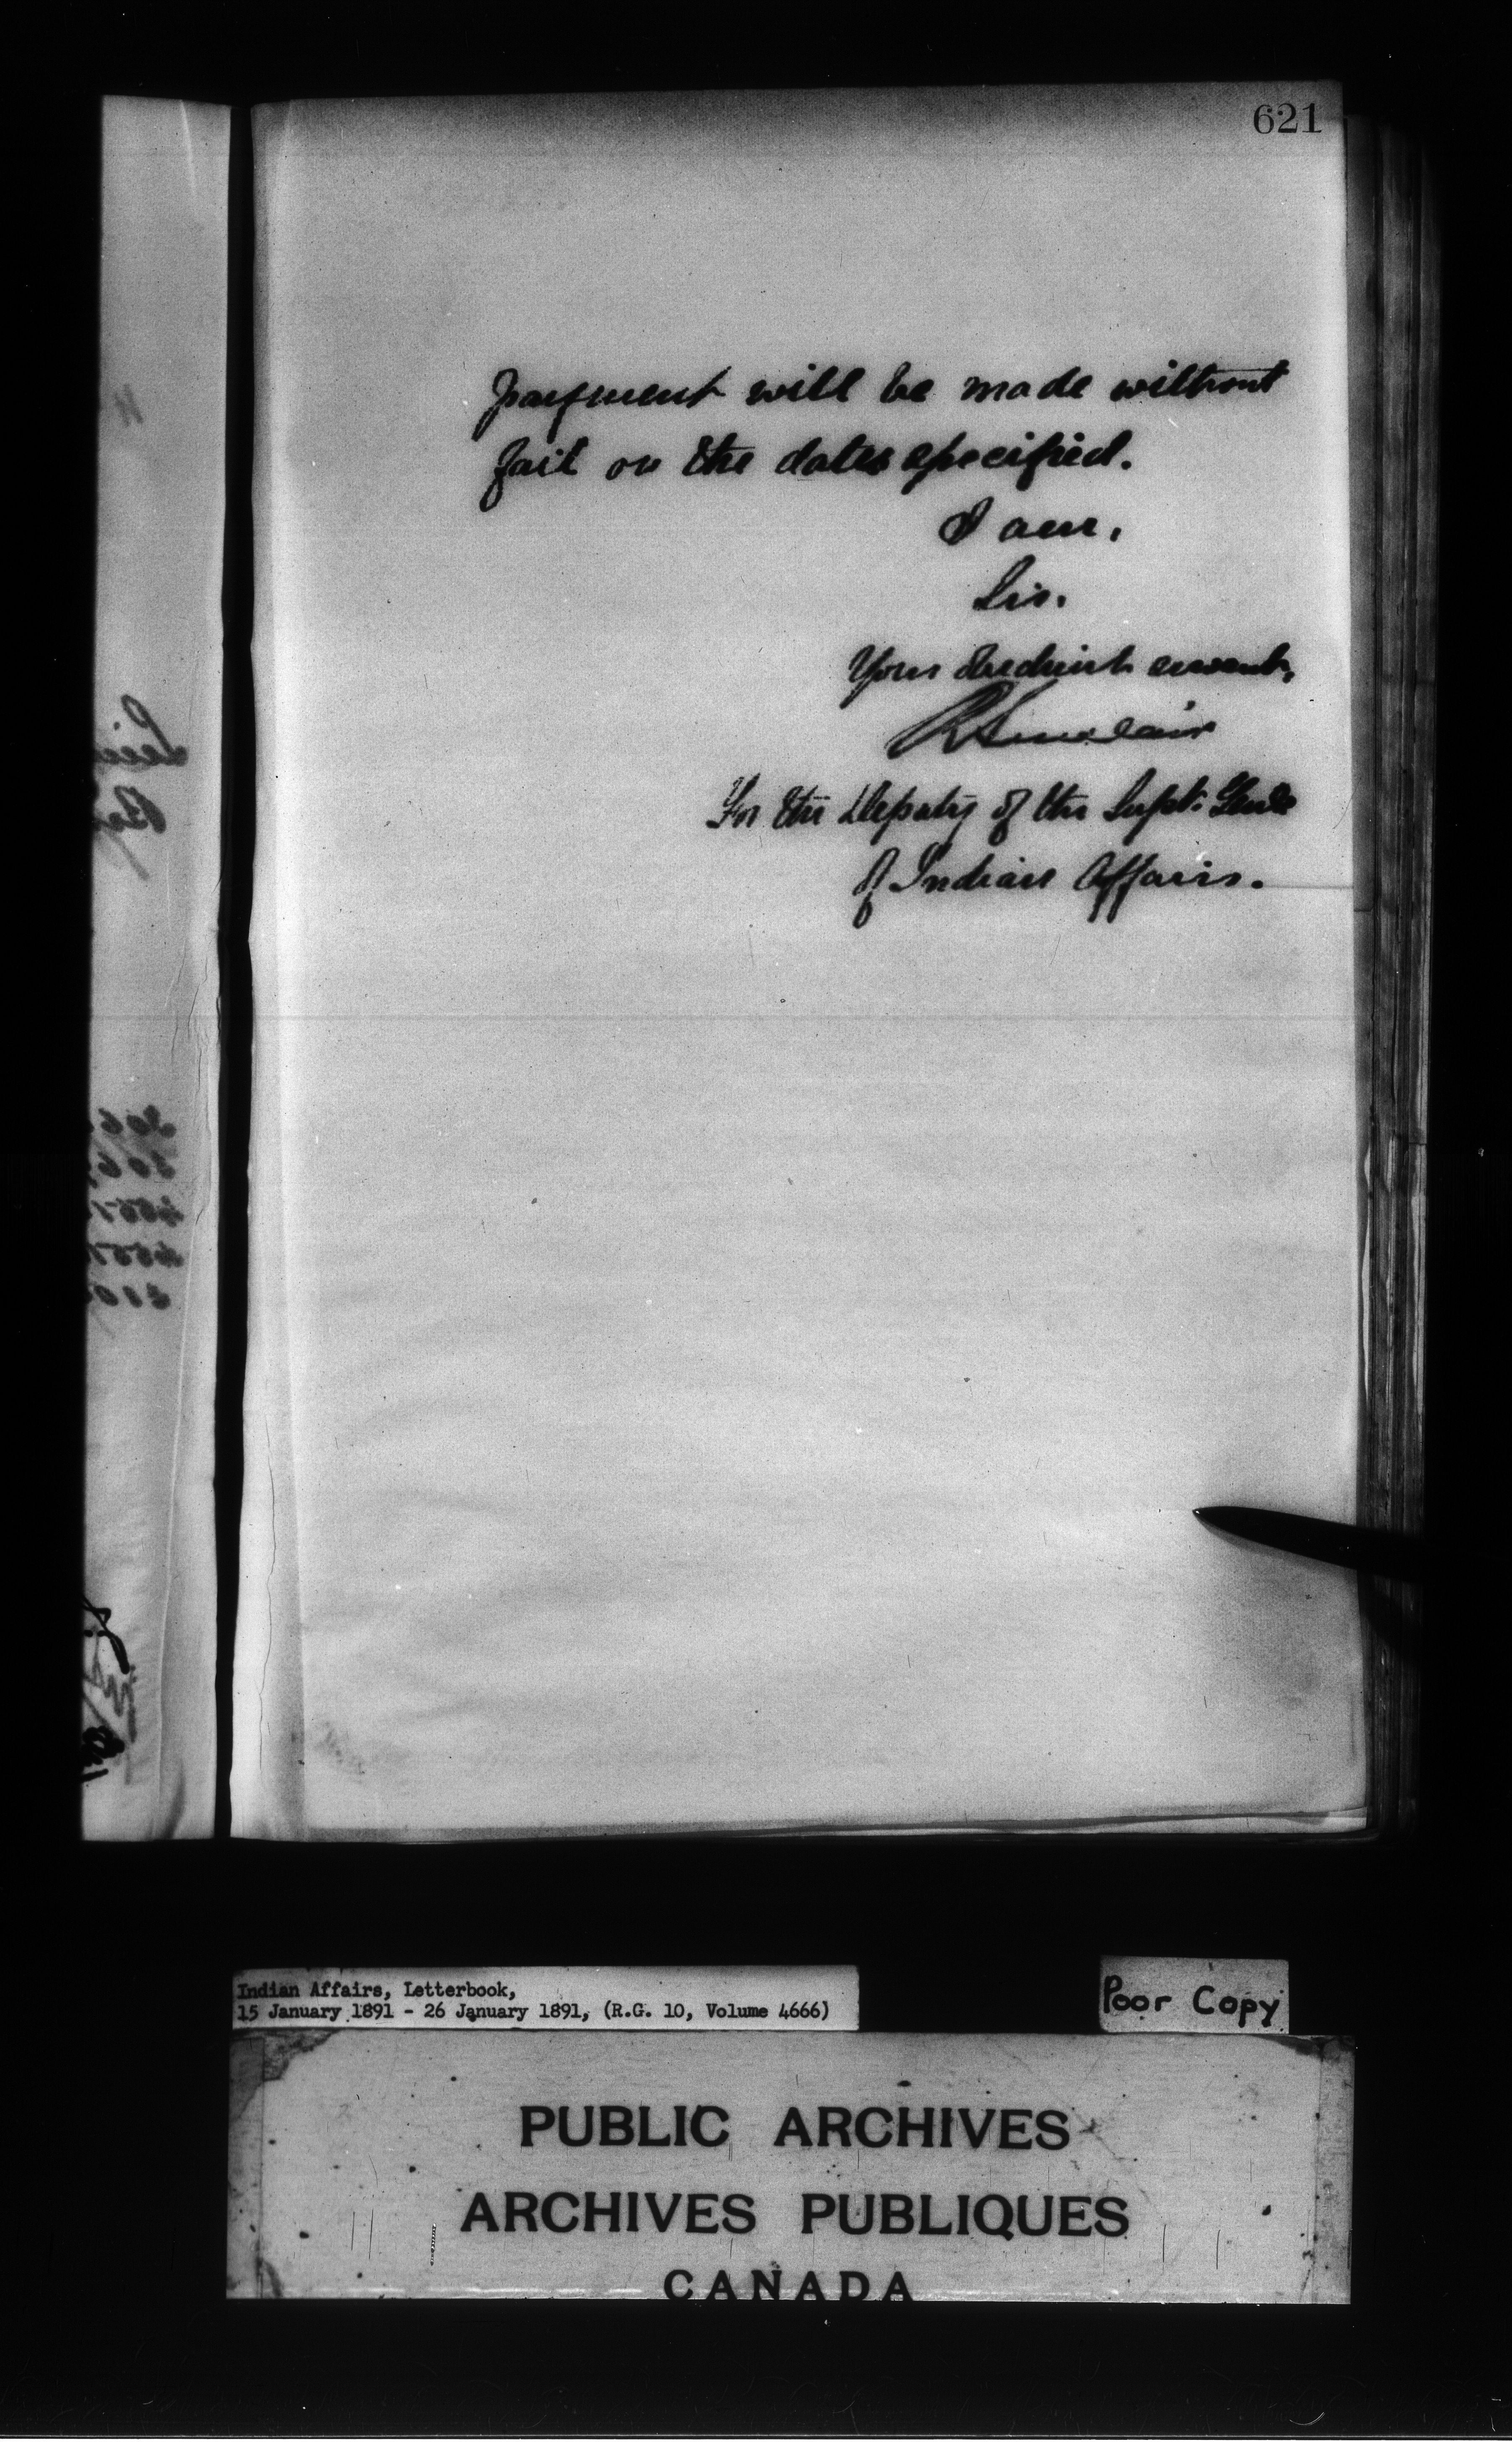 621
payment will be made without
fail on the dates specified.
I am,
Sir.
Your obedient servant,
R Sinclair
For the Deputy of the Supt. Genl
of Indian Affairs.
Indian Affairs, Letterbook,
15 January 1891 - 26 January 1891, (R.G. 10, Volume 4666)
Poor Copy
PUBLIC ARCHIVES
ARCHIVES PUBLIQUES
CANADA